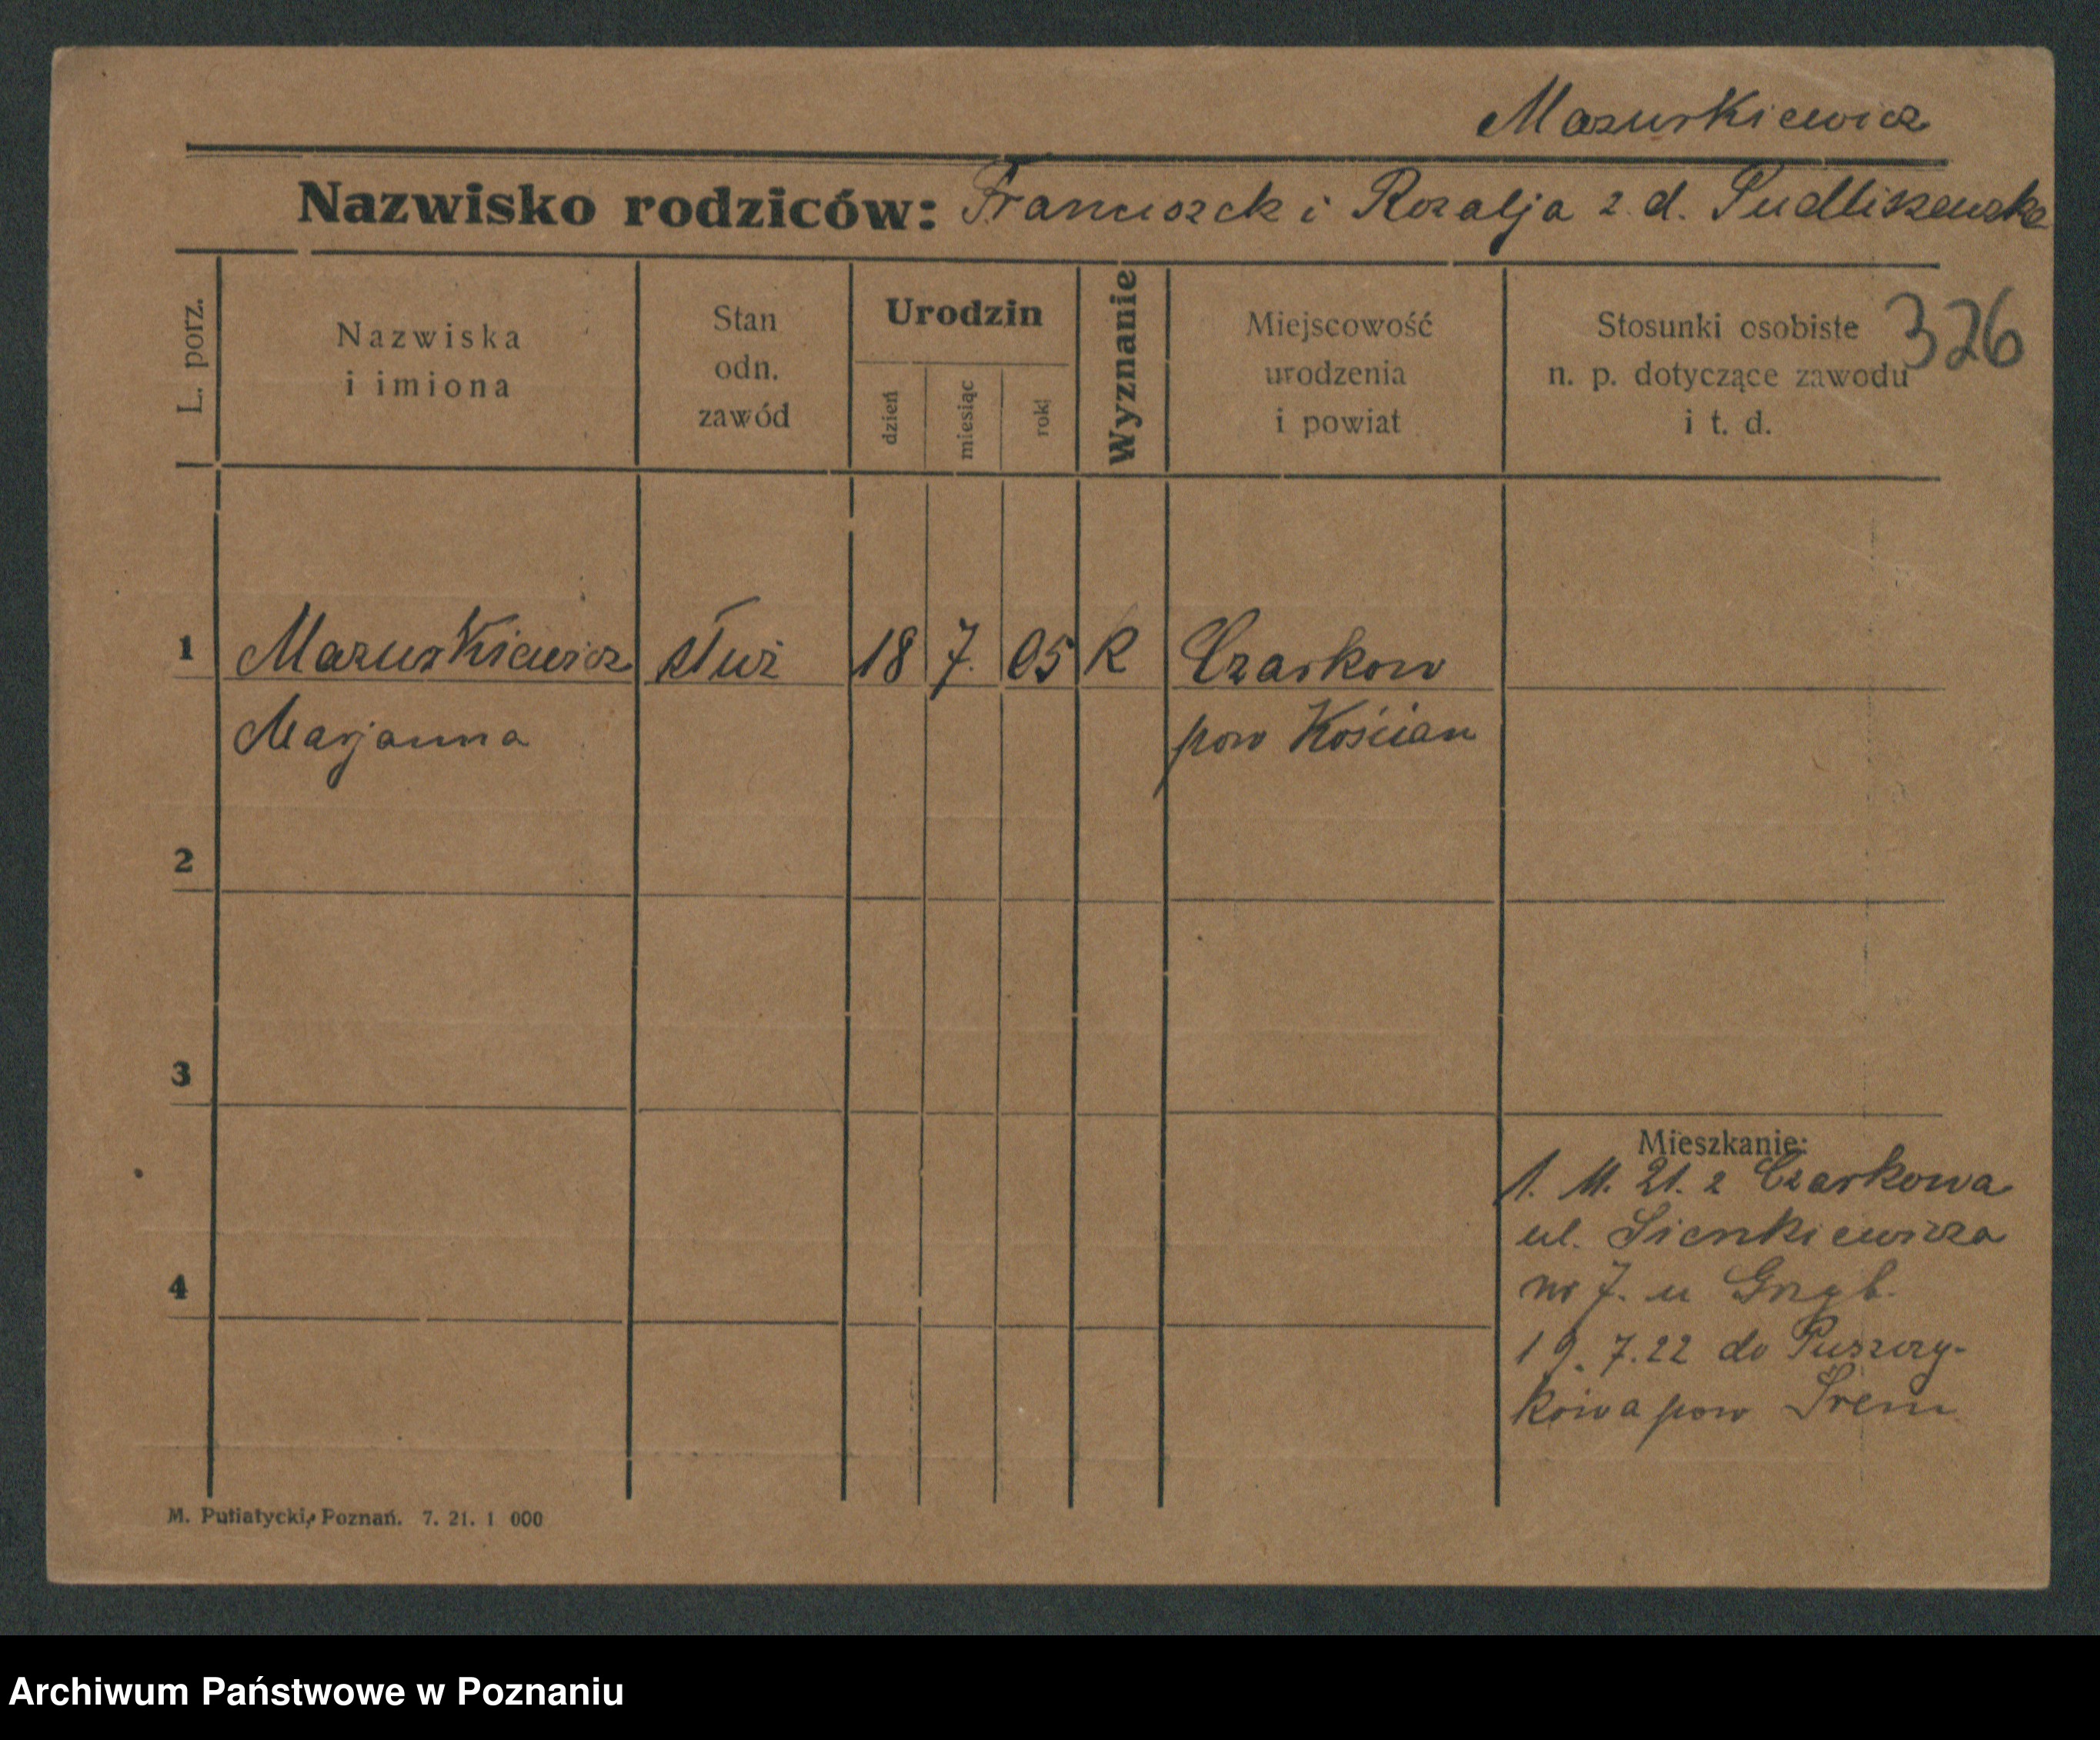 Mazurkiewicz
Nazwisko rodziców: Franciszek i Rozalja z. d. Pudliszewska
326
L. porz.
Nazwiska
i imiona
Stan
odn.
zawód
Urodzin
dzień
miesiąc
rok
Wyznanie
Miejscowość
urodzenia
i powiat
Stosunki osobiste
n. p. dotyczące zawodu
i t. d.
1 Mazurkiewicz służ 18 7. 05 R Czarkow
Marjanna pow Kościan
2
3
4
Mieszkanie:
1. 11. 21. z Czarkowa
ul. Sienkiewicza
nr 7. u
19. 7. 22 do Puszczy-
kowa pow Śrem
M. Putiatycki, Poznań. 7. 21. 1 000
Archiwum Państwowe w Poznaniu